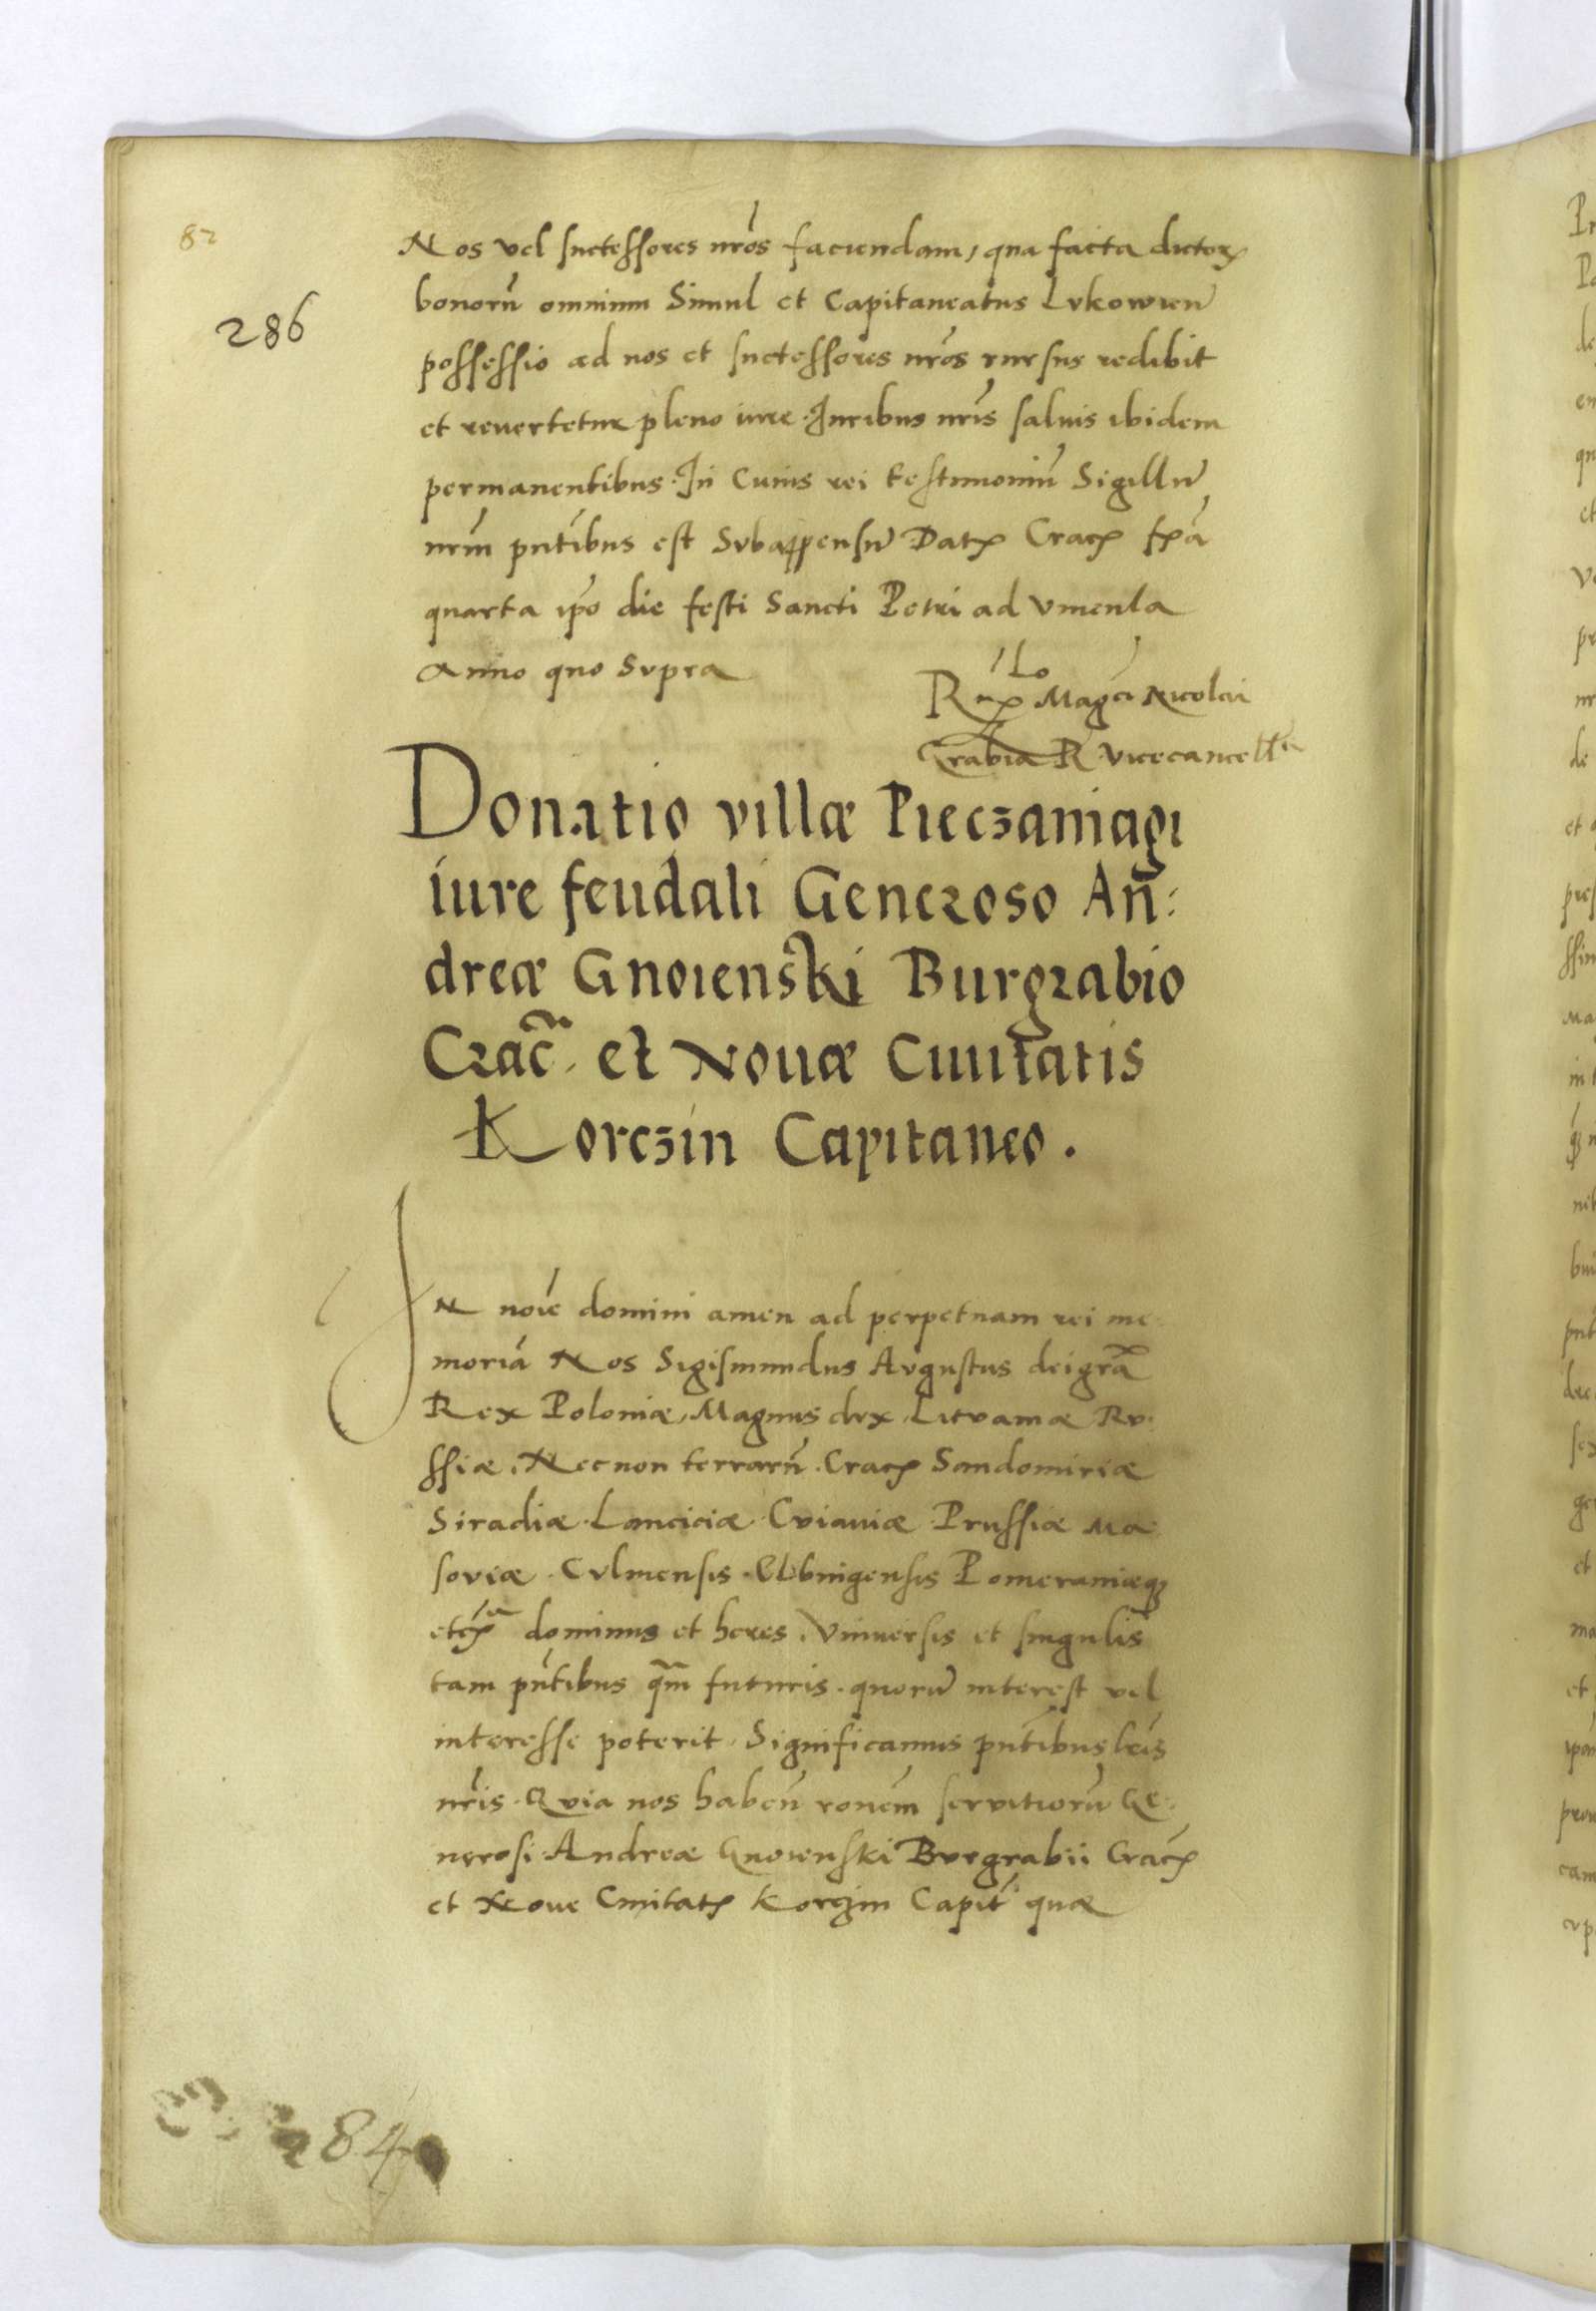 82
286
Nos vel successores nr̃os faciendam, qua facta dictorꝝ
bonorũ omnium Simul et Capitaneatus Lvkowień
possessio ad nos et successores nr̃os rursus redibit
et revertetur pleno iure. Iuribus nr̃is salvis ibidem
permanentibus. In Cuius rei testimoniũ Sigillũ
nr̃m pñtibus est Svbappensũ Datꝝ Cracꝝ fꝝia
quarta ip̃o die festi Sancti Petri ad vincula
Anno quo Svpra
Rꝝ Mag̃ci Nicolai
Grabia R vicecancell̃
Donatio villæ Pieczaniagi
iure feudali Generoso An̄:
dreæ Gnoienski Burgrabio
Crac̃. et Nouæ Ciuitatis
Korczin Capitaneo.
IN noie domini amen ad perpetuam rei me
moriã Nos Sigismundus Avgustus dei gr̃a
Rex Poloniæ, Magnus dvx Litvaniæ Rv
ssiæ, Necnon terrarũ Cracꝝ Sandomiriæ
Siradiæ Lanciciæ Cviauiæ Prussiæ Ma
soviæ Cvlmensis Elbingensis Pomeraniæqꝫ
etcꝝ dominus et heres Vniuersis et singulis
tam pñtibus qm̃ futuris. quorũ interest vel
interesse poterit, Significamus pñtibus lr̃is
nr̃is. Qvia nos habeñ ronem̃ servitiorũ Ge
nerosi Andreæ Gnoienski Bvrgrabii Cracꝝ
et Noue Ciuitatꝝ Korczin Capit̃ quæ
284